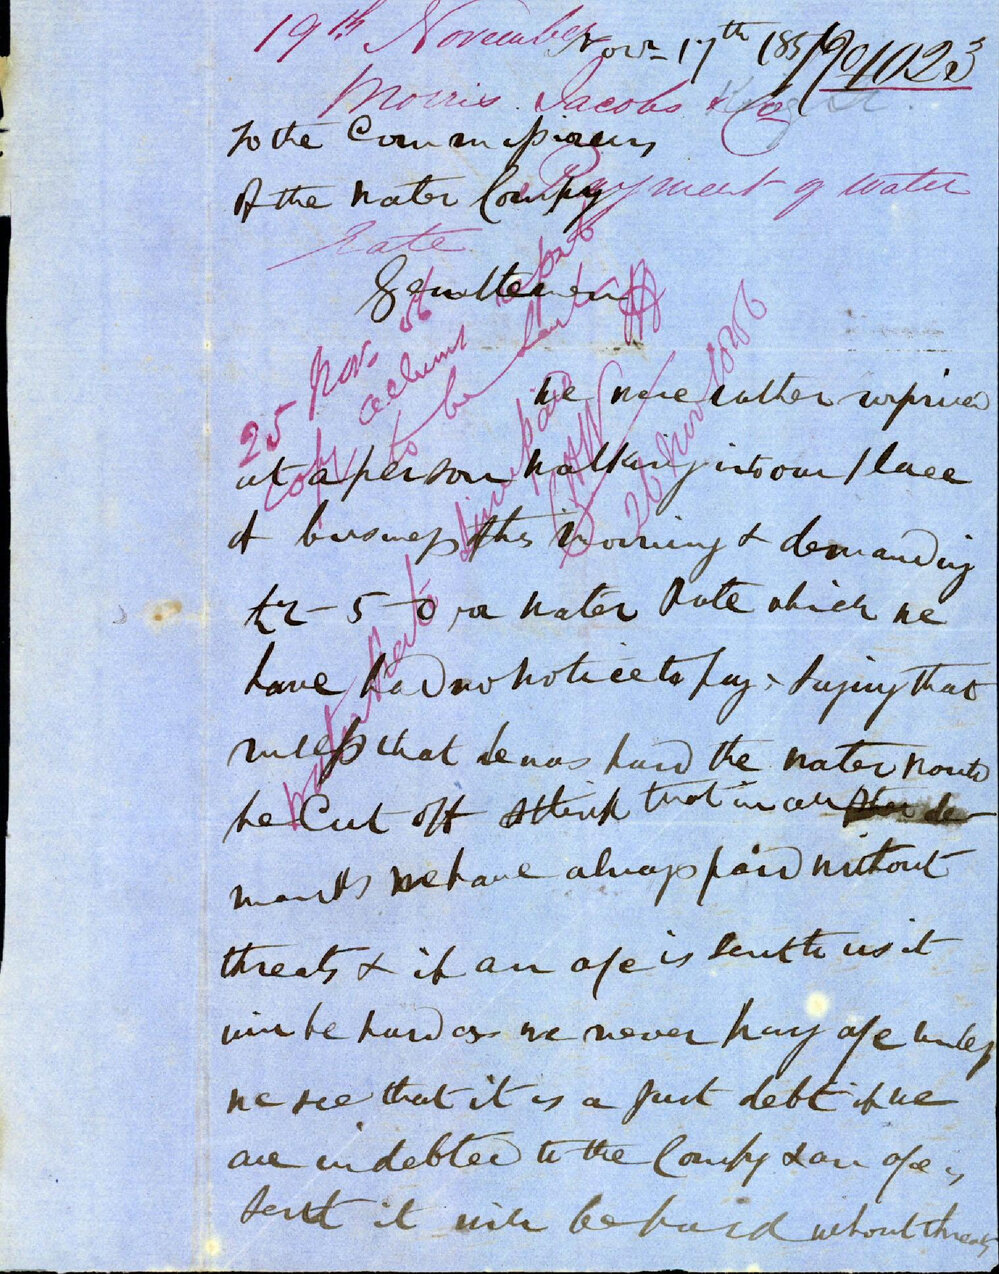 19th November
Novr 17th 185
No 1023
Morris Jacobs & Co
To the Commissioners
Payment of water
Of the Water Compy
Rate
Gentlemen
25 Novr 56
Copy account
to be sent
26 Novr 1856
We were rather surprised
at a person walking into our place
of business this morning & demanding
£2-5-0 for Water Rate which we
have had no notice to pay & saying that
unless that he was paid the water would
be Cut off I think that in all de
mands we have always paid without
threats & if an a/c is sent to us it
will be paid as we never pay a/c unless
we see that it is a just debt if we
are indebted to the Compy & an a/c is
sent it will be paid without threats